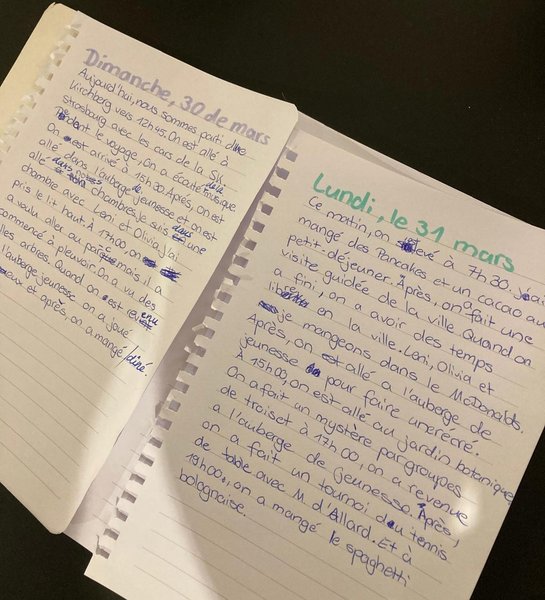 Dimanche, 30 de mars
Aujourd'hui, nous sommes parti de
Kirchberg vers 12h45. On est allé à
strasbourg avec les cars de la
Pendant le voyage, on a écouté musique
On est arrivé à 15h30. Après, on est
allé dans l'auberge de jeunesse et on est
allé dans notre chambres. Je suis dans une
chambre avec Leni et Olivia. J'ai
pris le lit haut. À 17h00 on
a voulu aller au parc mais il a
commencé à pleuvoir. On a vu des
les arbres. Quand on est revenu
l'auberge jeunesse on a joué
eux et après, on a mangé / diné.
Lundi, le 31 mars
Ce matin, on levé à 7h30. J'ai
mangé des Pancakes et un cacao au
petit-déjeuner. Après, on a fait une
visite guidée de la ville. Quand on
a fini, on a avoir des temps
libre en la ville. Leni, Olivia et
je mangeons dans le McDonalds.
Après, on est allé a l'auberge de
jeunesse pour faire unerécré.
À 15h00, on est allé au jardin botanique
On a fait un mystère par groupes
de trois et à 17h00, on a revenue
a l'auberge de jeunesse. Après,
on a fait un tournoi du tennis
de table avec M. d'Allard. Et à
19h00, on a mangé le spaghetti
bolognaise.